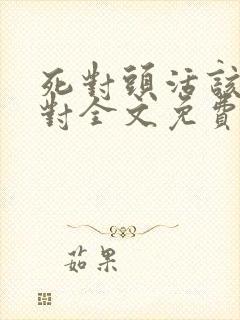 死對頭活該
對全文免費
茹果